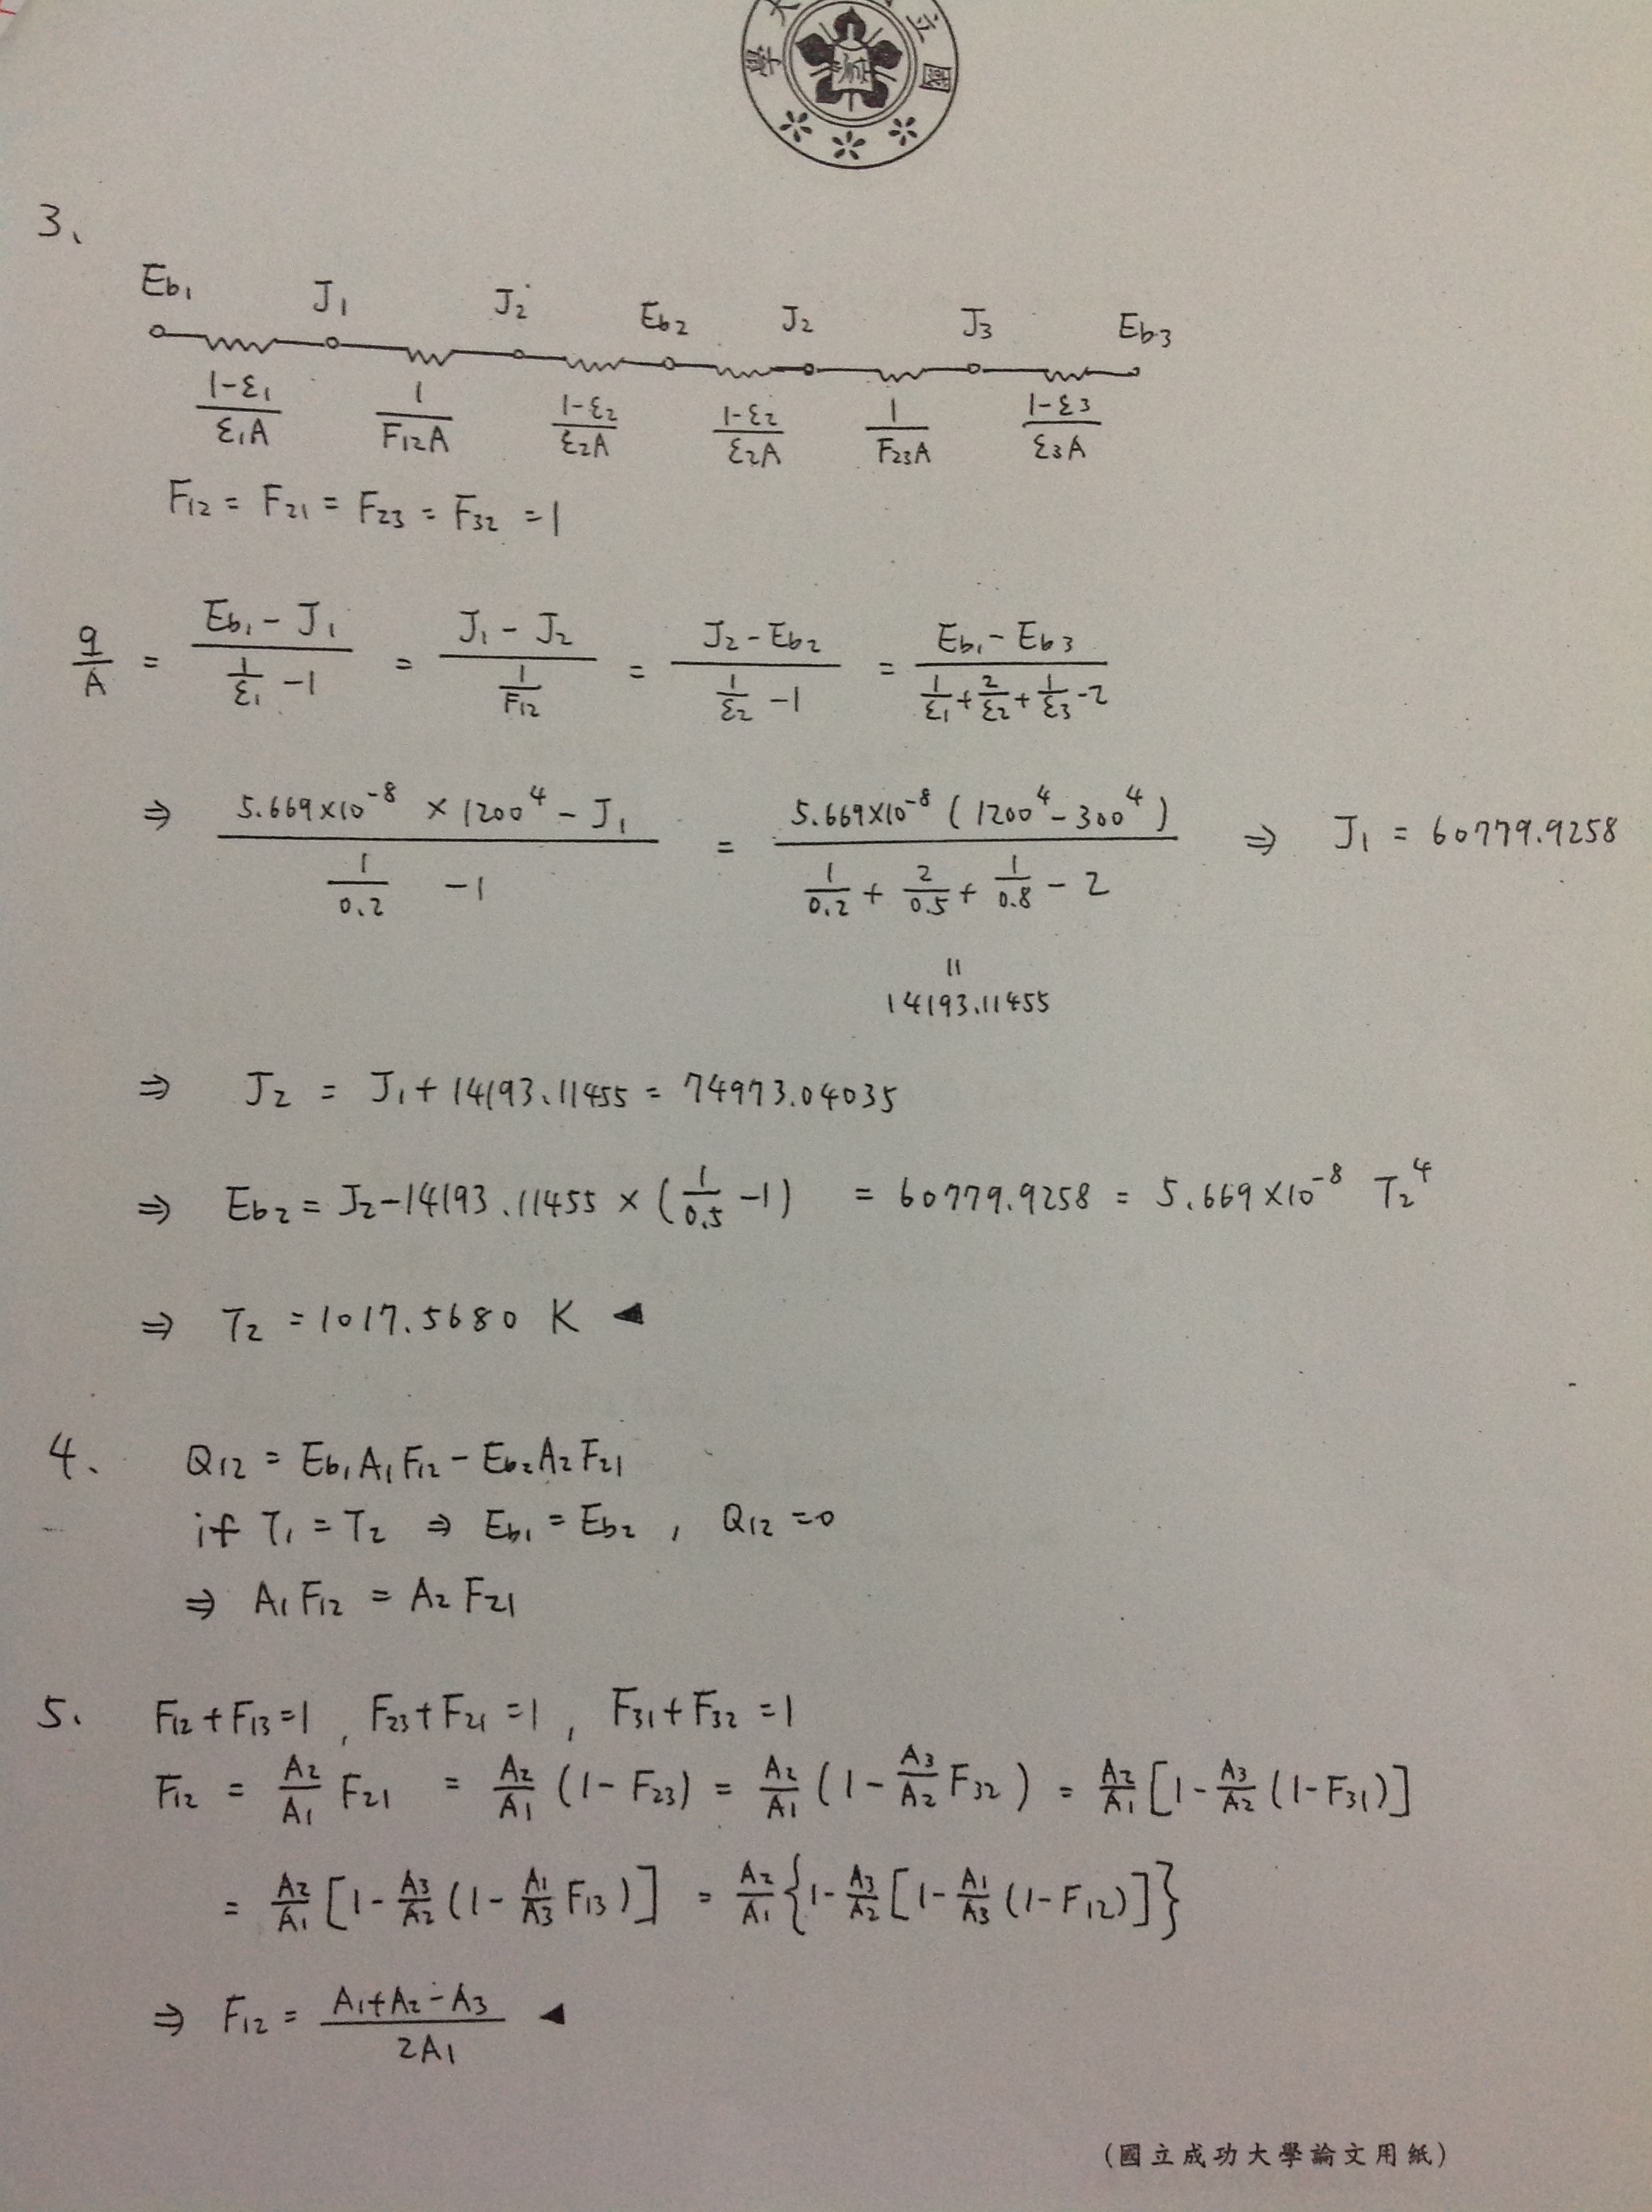 大 立
學 國
成
3、
Eb₁ J₁ J₂ Eb₂ J₂ J₃ Eb₃
(1-ε₁)/(ε₁A) 1/(F₁₂A) (1-ε₂)/(ε₂A) (1-ε₂)/(ε₂A) 1/(F₂₃A) (1-ε₃)/(ε₃A)
F₁₂ = F₂₁ = F₂₃ = F₃₂ = 1
q/A = (Eb₁ - J₁)/(1/ε₁ - 1) = (J₁ - J₂)/(1/F₁₂) = (J₂ - Eb₂)/(1/ε₂ - 1) = (Eb₁ - Eb₃)/(1/ε₁ + 2/ε₂ + 1/ε₃ - 2)
⇒ (5.669×10⁻⁸ × 1200⁴ - J₁)/(1/0.2 - 1) = (5.669×10⁻⁸ (1200⁴ - 300⁴))/(1/0.2 + 2/0.5 + 1/0.8 - 2) ⇒ J₁ = 60779.9258
=
14193.11455
⇒ J₂ = J₁ + 14193.11455 = 74973.04035
⇒ Eb₂ = J₂ - 14193.11455 × (1/0.5 - 1) = 60779.9258 = 5.669×10⁻⁸ T₂⁴
⇒ T₂ = 1017.5680 K ◄
4. Q₁₂ = Eb₁A₁F₁₂ - Eb₂A₂F₂₁
if T₁ = T₂ ⇒ Eb₁ = Eb₂ , Q₁₂ = 0
⇒ A₁F₁₂ = A₂F₂₁
5. F₁₂ + F₁₃ = 1 , F₂₃ + F₂₁ = 1 , F₃₁ + F₃₂ = 1
F₁₂ = A₂/A₁ F₂₁ = A₂/A₁ (1 - F₂₃) = A₂/A₁ (1 - A₃/A₂ F₃₂) = A₂/A₁ [1 - A₃/A₂ (1 - F₃₁)]
= A₂/A₁ [1 - A₃/A₂ (1 - A₁/A₃ F₁₃)] = A₂/A₁ {1 - A₃/A₂ [1 - A₁/A₃ (1 - F₁₂)]}
⇒ F₁₂ = (A₁ + A₂ - A₃)/(2A₁) ◄
(國立成功大學論文用紙)